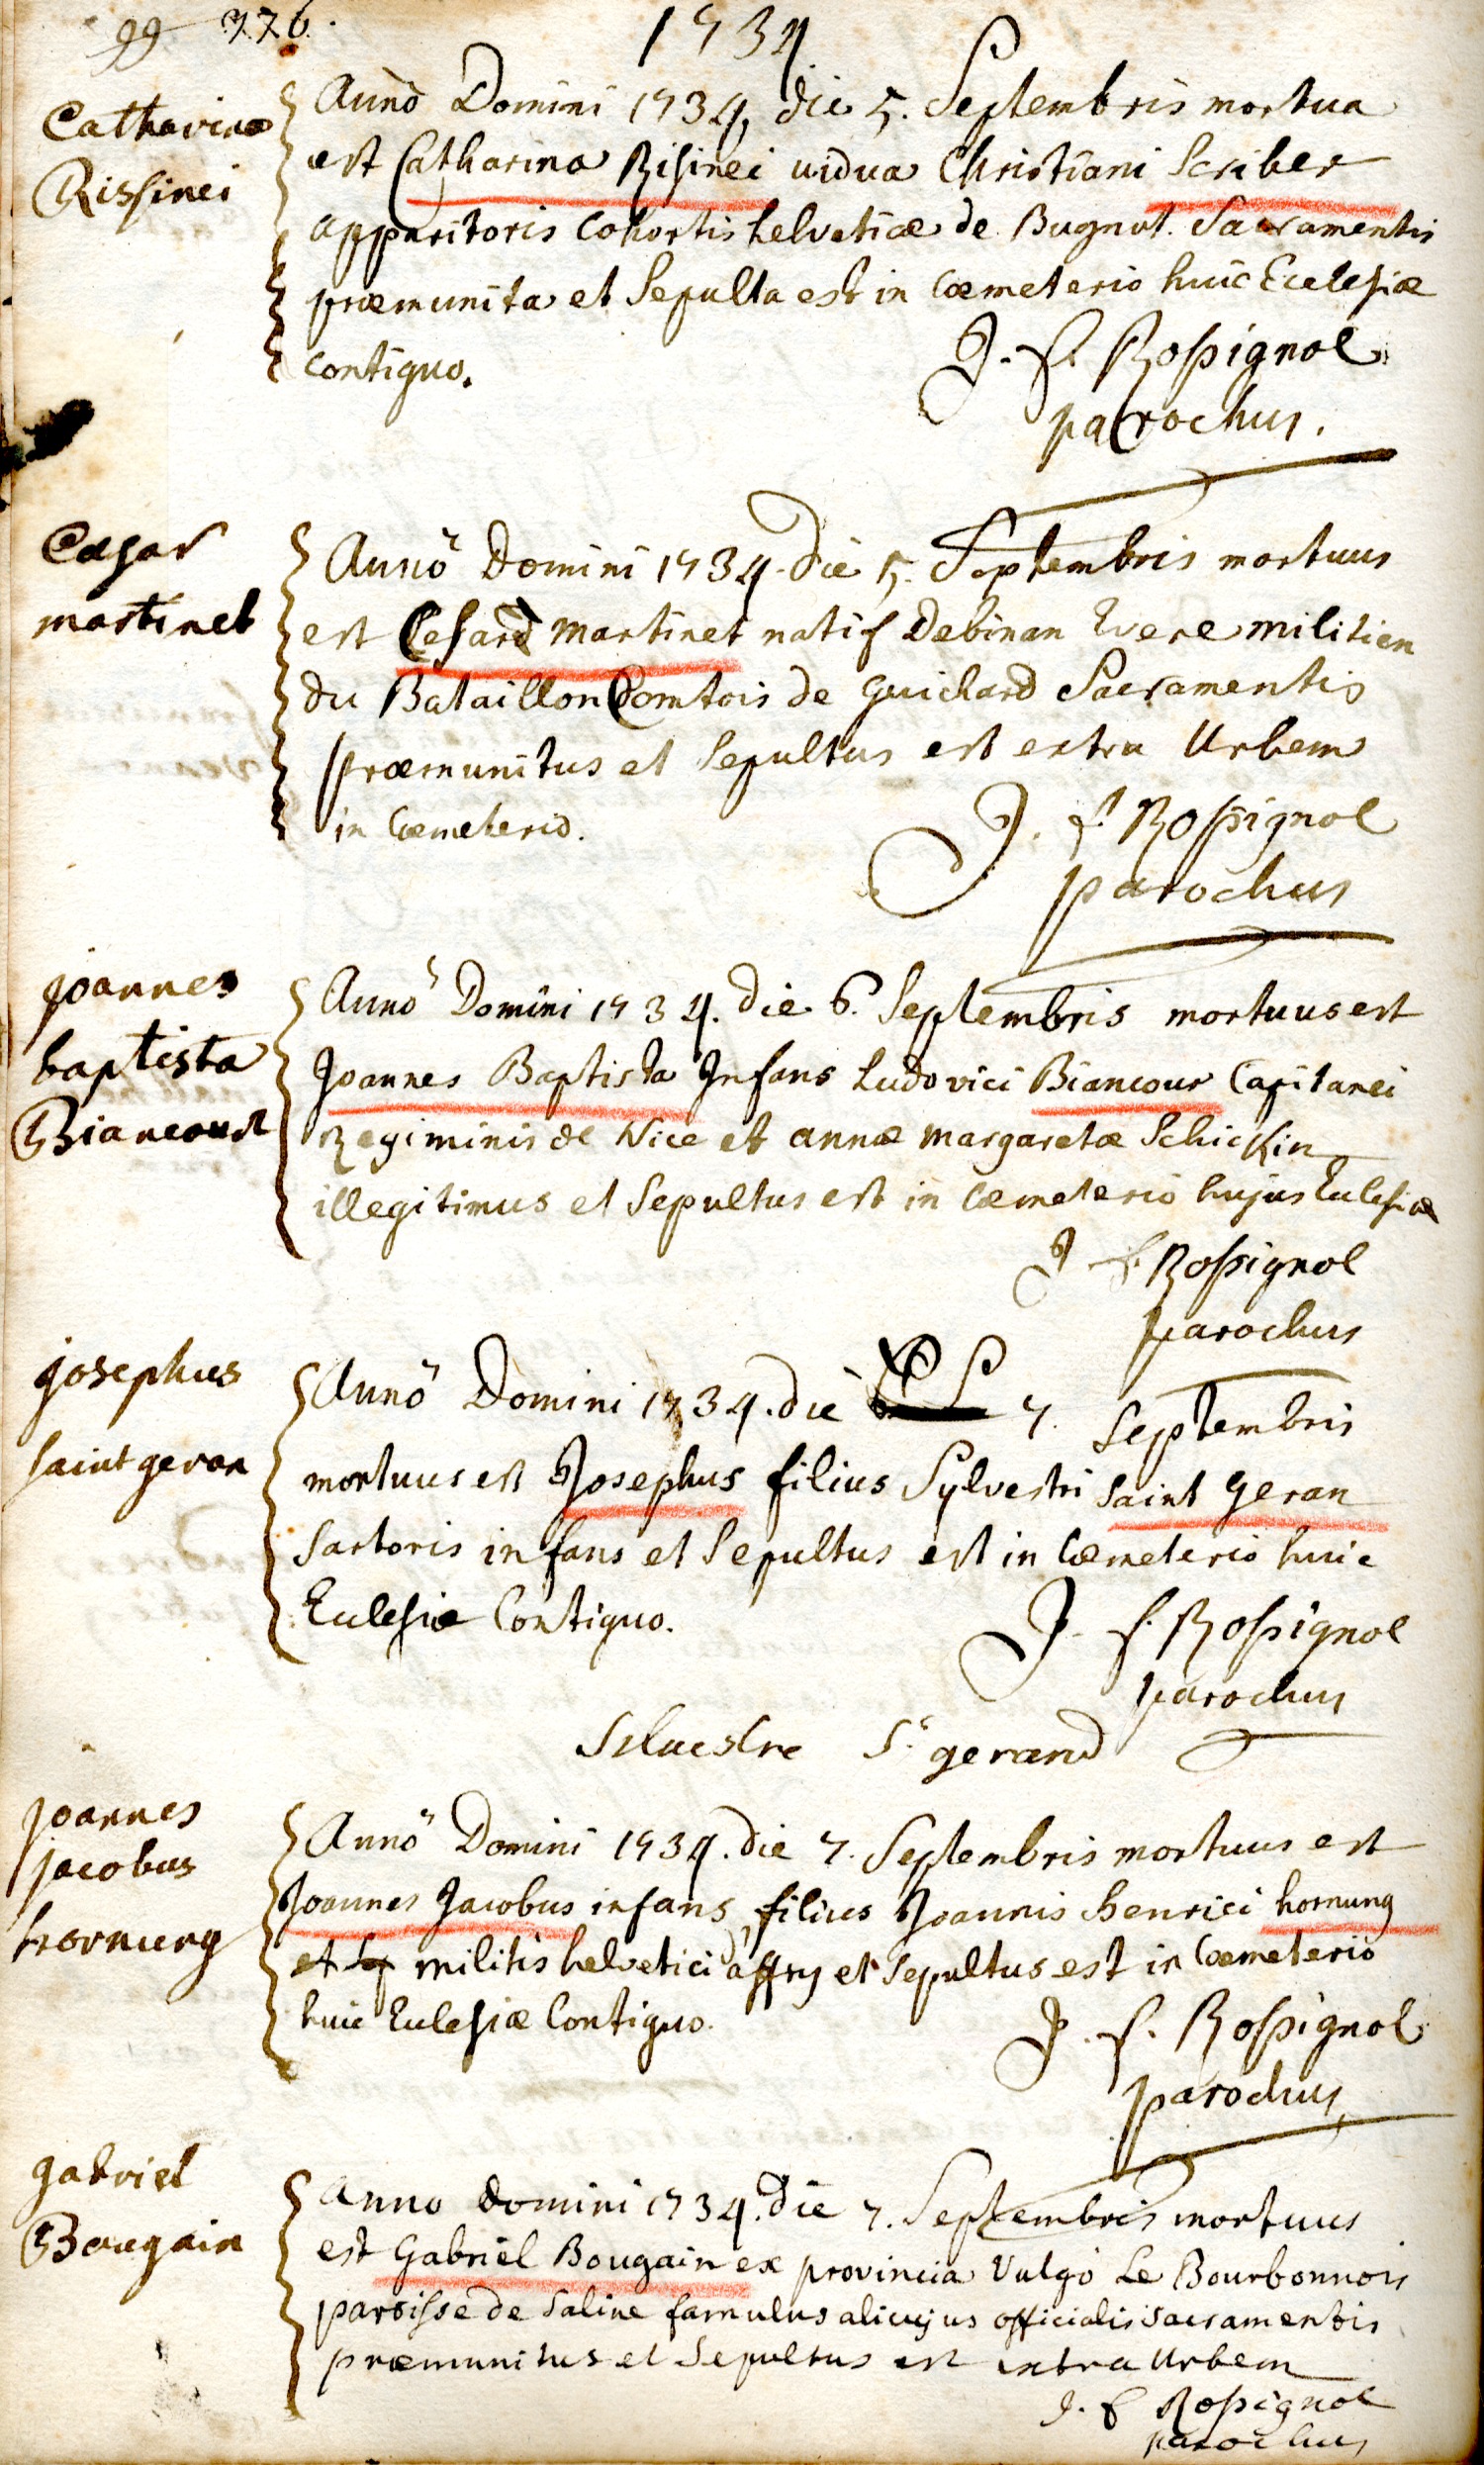 99 376.
1734
Catharina
Rissinei
Annö Domini 1734, die 5. Septembris mortua
est Catharina Risinei vidua Christiani Scriber
apparitoris Cohortis helveticæ de Bugnot. Sacramentis
præmunita et Sepulta est in Cœmeterio huic Ecclesiæ
Contiguo.
J. f. Rossignol
parochus.
Cæsar
martinet
Annö Domini 1734. die 5. Septembris mortuus
est Cesard Martinet natif Debinan Evere militien
du Bataillon Comtois de Guichard Sacramentis
præmunitus et Sepultus est extra Urbem
in Cœmeterio.
J. f. Rossignol
parochus
joannes
baptista
Biancourt
Annö Domini 1734. die 6. Septembris mortuus est
Joannes Baptista Infans Ludovici Biancour Capitanei
Regiminis de Nice et annæ margaretæ Schickin
illegitimus et Sepultus est in Cœmeterio hujus Eclesiæ
J f. Rossignol
parochus
josephus
saint geran
Annö Domini 1734. die 7. Septembris
mortuus est Josephus filius Sylvestri Saint Geran
Sartoris infans et Sepultus est in Cœmeterio huic
Eclesiæ Contiguo.
J. f. Rossignol
parochus
Siluestre St gerand
joannes
jacobus
hornung
Annö Domini 1734. die 7. Septembris mortuus est
Joannes Jacobus infans, filius Joannis henrici hornung
et militis helvetici d'affry et Sepultus est in Cœmeterio
huic Eclesiæ Contiguo.
J. f. Rossignol
parochus
gabriel
Bougain
anno Domini 1734. Die 7. Septembris mortuus
est Gabriel Bougain ex provincia Vulgò Le Bourbonnois
paroisse de Saline famulus alicujus officialis sacramentis
præmunitus et Sepultus est extra Urbem
J. f Rossignol
parochus